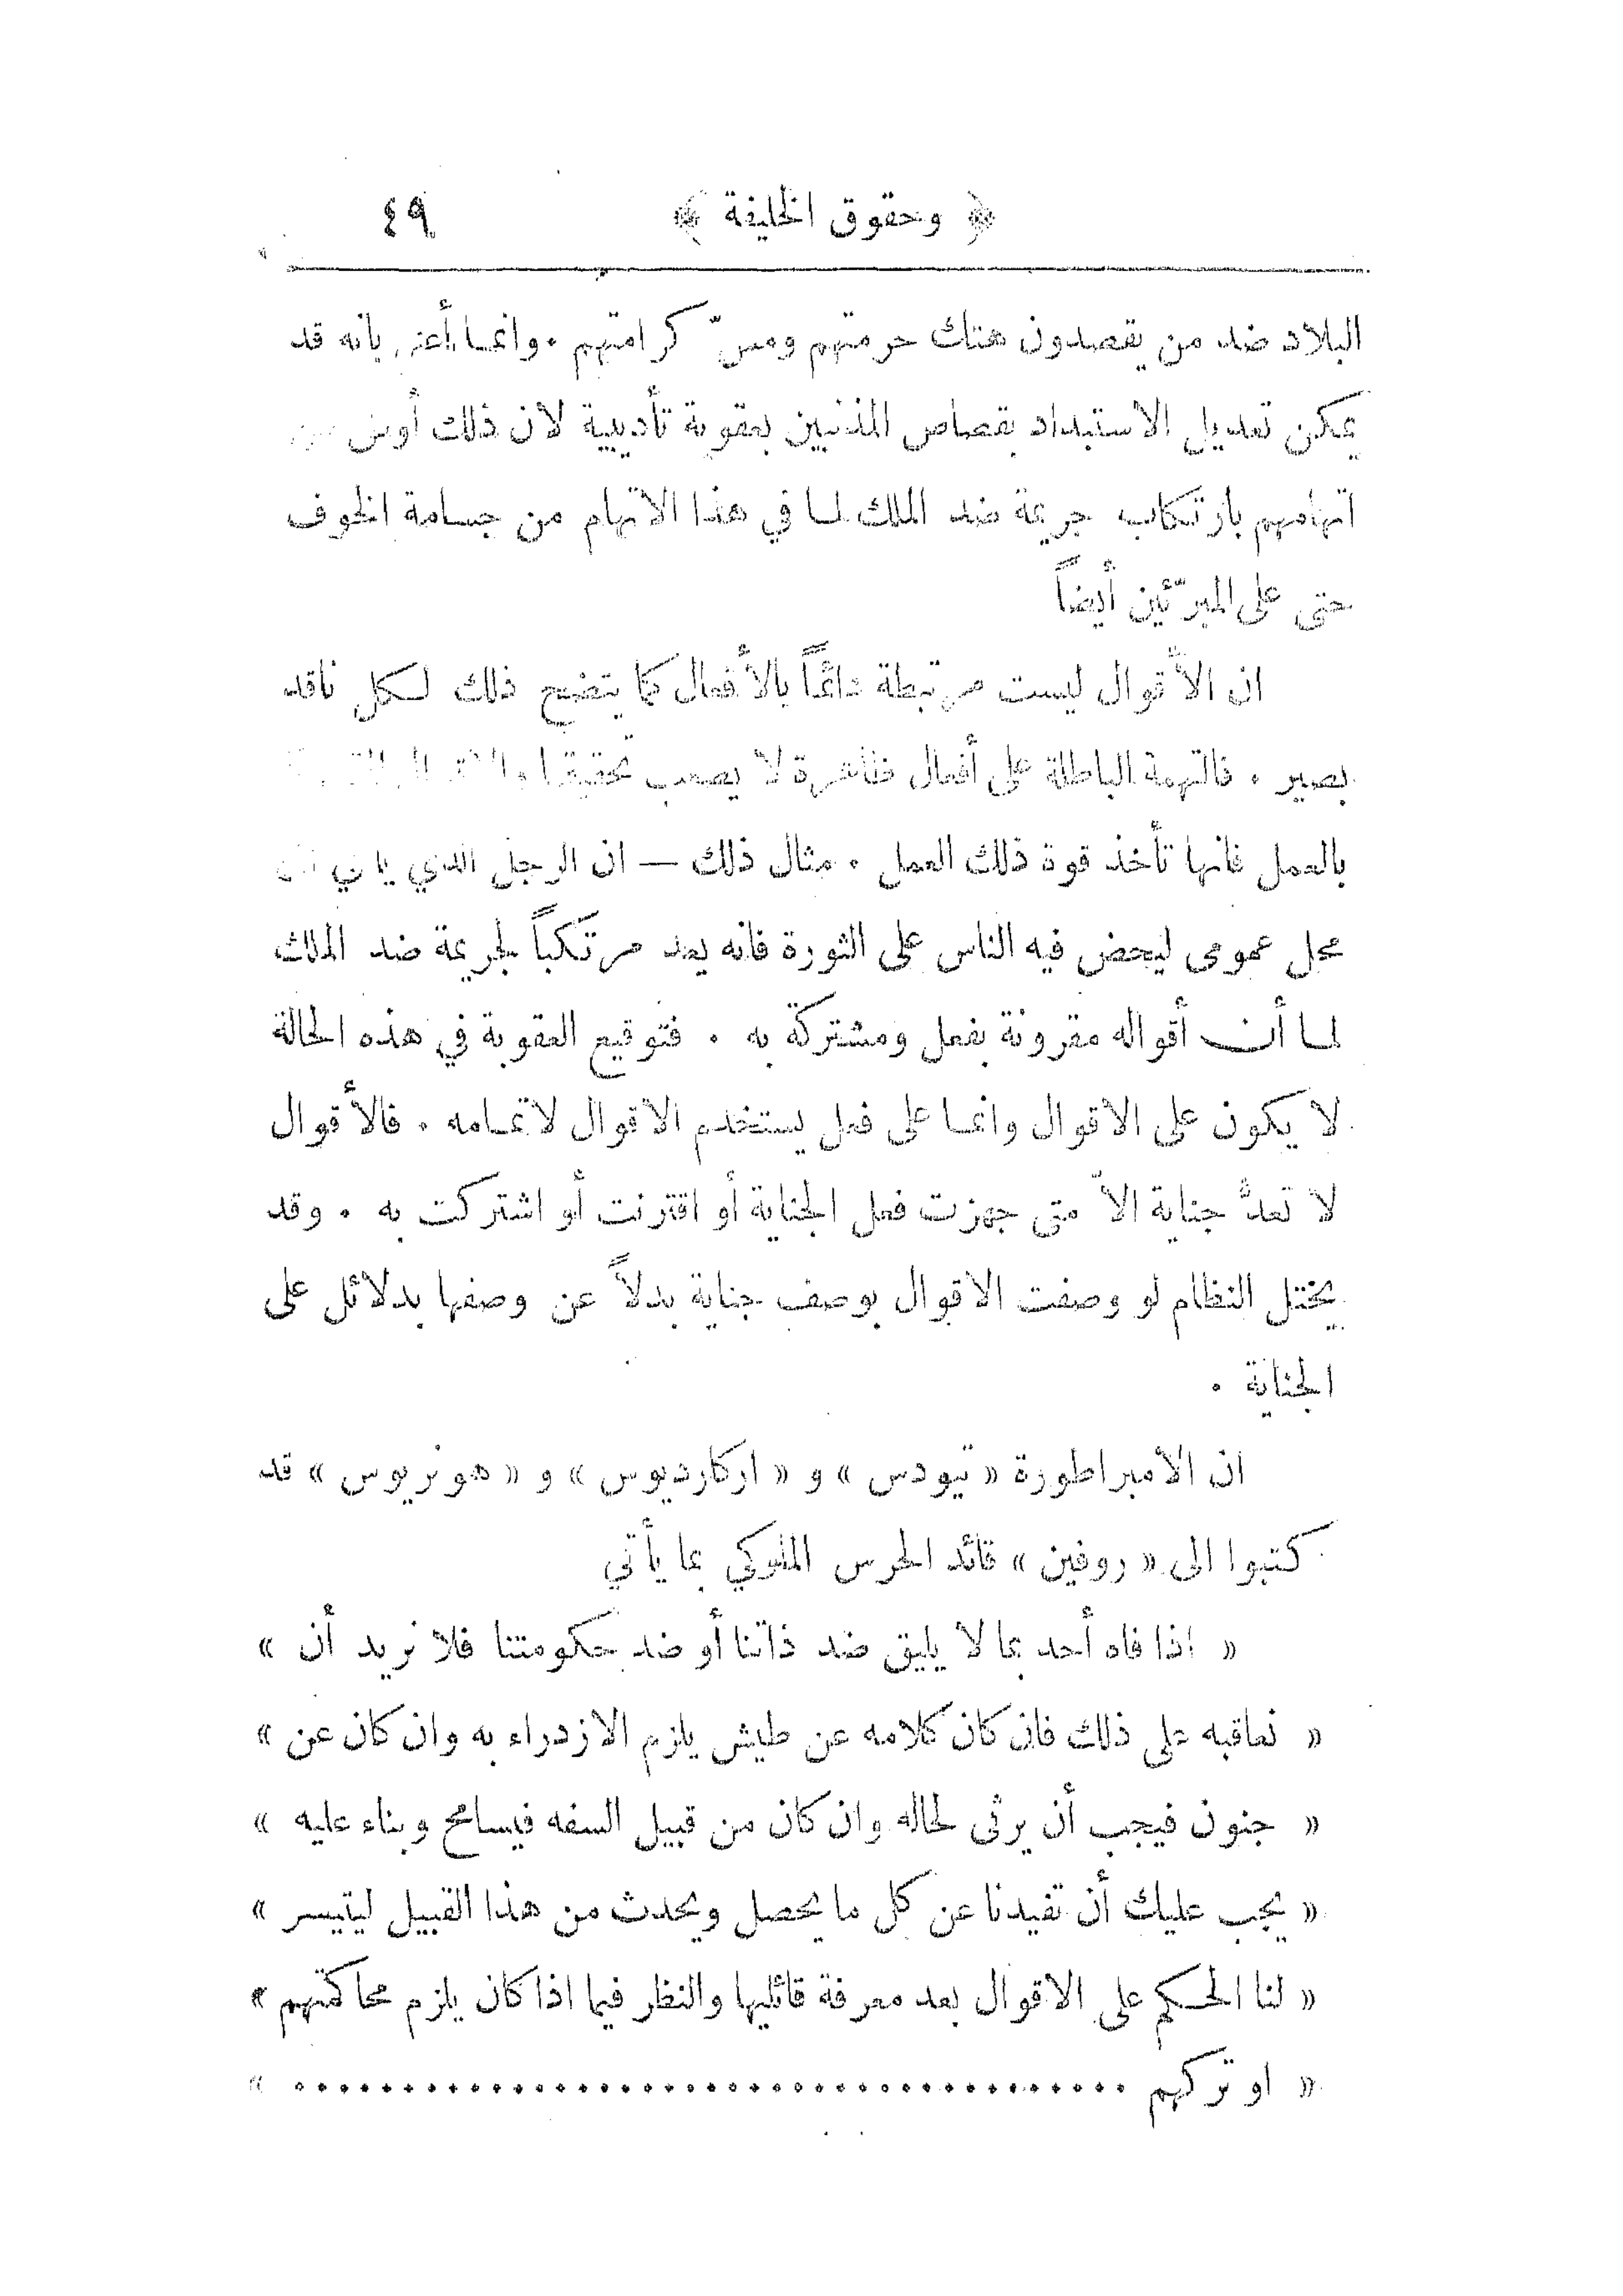 ﴿ وحقوق الخليفة ﴾ ٤٩
البلاد ضد من يقصدون هتك حرمتهم ومسّ كرامتهم . وانما أعني بانه قد
يمكن تعديل الاستبداد بقصاص المذنبين بعقوبة تأديبية لان ذلك
اتهامهم بارتكاب جريمة ضد الملك لما في هذا الاتهام من جسامة الخوف
حتى على المبرّئين أيضاً
ان الأقوال ليست مرتبطة دائماً بالأفعال كما يتضح ذلك لكل ناقد
بصير . فالتهمة الباطلة على أفعال ظاهرة لا يصعب تحقيقها
بالعمل فانها تأخذ قوة ذلك العمل . مثال ذلك — ان الرجل الذي
محل عمومى ليحض فيه الناس على الثورة فانه يعد مرتكباً لجريمة ضد الملك
لما أن أقواله مقرونة بفعل ومشتركة به . فتوقيع العقوبة في هذه الحالة
لا يكون على الاقوال وانما على فعل يستخدم الاقوال لاتمامه . فالأقوال
لا تعدُّ جناية الاّ متى جهزت فعل الجناية أو اقترنت أو اشتركت به . وقد
يختل النظام لو وصفت الاقوال بوصف جناية بدلاً عن وصفها بدلائل على
الجناية .
ان الامبراطورة « تيودس » و « اركارديوس » و « هونريوس » قد
كتبوا الى « روفين » قائد الحرس الملوكي بما يأتي
« اذا فاه أحد بما لا يليق ضد ذاتنا أو ضد حكومتنا فلا نريد أن »
« نعاقبه على ذلك فان كان كلامه عن طيش يلزم الازدراء به وان كان عن »
« جنون فيجب أن يرثى لحاله وان كان من قبيل السفه فيسامح وبناء عليه »
« يجب عليك أن تفيدنا عن كل ما يحصل ويحدث من هذا القبيل ليتيسر »
« لنا الحكم على الاقوال بعد معرفة قائليها والنظر فيما اذا كان يلزم محاكمتهم »
« او تركهم ...................................... »